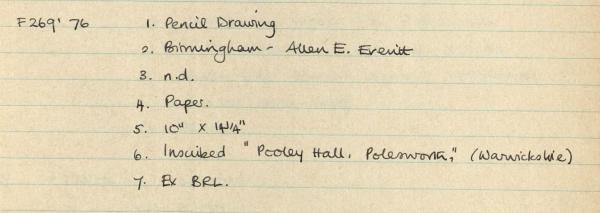 F269'76 1. Pencil Drawing
2. Birmingham - Allen E. Everitt
3. n.d.
4. Paper.
5. 10" x 14¼"
6. Inscribed "Pooley Hall, Polesworth," (Warwickshire)
7. Ex BRL.